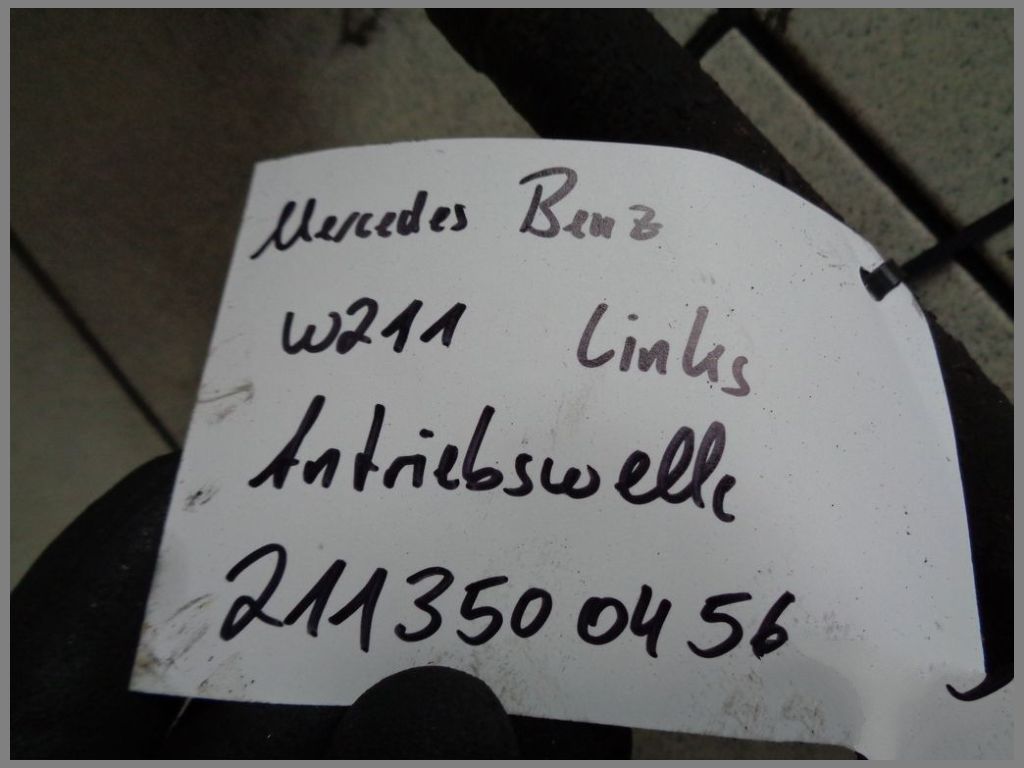 Mercedes Benz
W211 Links
Antriebswelle
2113500456